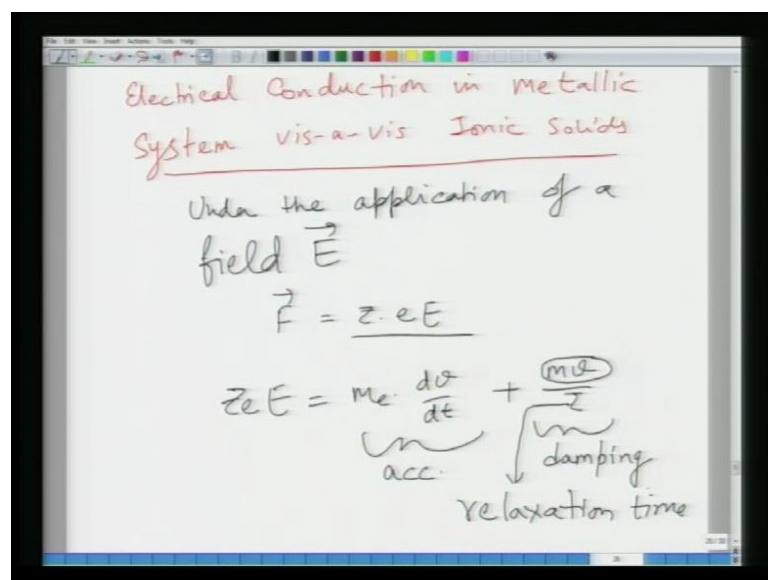 File Edit View Insert Actions Tools Help
Electrical Conduction in metallic
System vis-a-vis Ionic Solids
Under the application of a
field E⃗
F⃗ = z.eE
ZeE = me. dv/dt + mv/τ
acc. damping
relaxation time